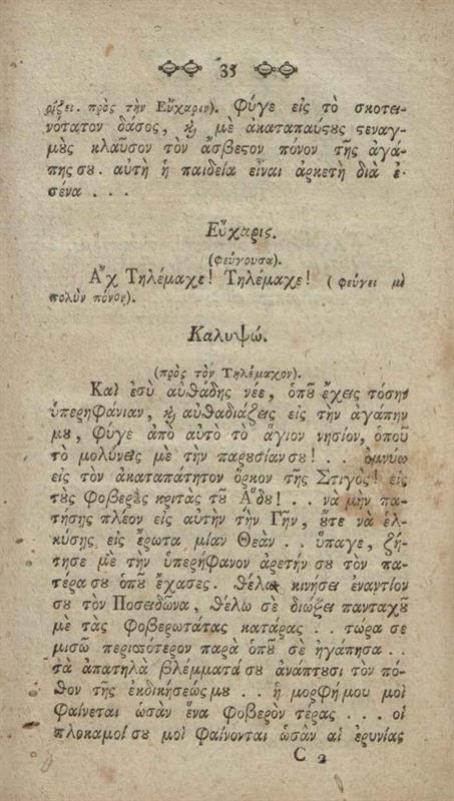 35
ρίζει. πρὸς τὴν Εὔχαριν). Φύγε εἰς τὸ σκοτει-
νότατον δάσος, ϗ μὲ ἀκαταπαύτους στεναγ-
μοὺς κλαῦσον τὸν ἄσβεστον πόνον τῆς ἀγά-
πης σου. αὐτὴ ἡ παιδεία εἶναι ἀρκετὴ διὰ ἐ-
σένα . . .
Εὔχαρις.
(φεύγουσα).
Ἂχ Τηλέμαχε! Τηλέμαχε! (φεύγει μὲ
πολὺν πόνον).
Καλυψώ.
(πρὸς τὸν Τηλέμαχον).
Καὶ ἐσὺ αὐθάδης νέε, ὁποῦ ἔχεις τόσην
ὑπερηφάνιαν, ϗ αὐθαδιάζεις εἰς τὴν ἀγάπην
μου, φύγε ἀπὸ αὐτὸ τὸ ἅγιον νησίον, ὁποῦ
τὸ μολύνεις μὲ τὴν παρουσίαν σου! . . ὀμνύω
εἰς τὸν ἀκαταπάτητον ὅρκον τῆς Στιγός! εἰς
τοὺς φοβερὰς κριτὰς τοῦ ᾍδου! . . νὰ μὴν πα-
τήσῃς πλέον εἰς αὐτὴν τὴν Γῆν, οὔτε νὰ ἑλ-
κύσῃς εἰς ἔρωτα μίαν Θεὰν . . ὕπαγε, ζή-
τησε μὲ τὴν ὑπερήφανον ἀρετήν σου τὸν πα-
τέρα σου ὁποῦ ἔχασες. θέλω κινήσει ἐναντίον
σου τὸν Ποσειδῶνα, θέλω σὲ διώξει πανταχοῦ
μὲ τὰς φοβερωτάτας κατάρας . . τώρα σε
μισῶ περισσότερον παρὰ ὁποῦ σὲ ἠγάπησα . .
τὰ ἀπατηλὰ βλέμματά σου ἀνάπτουσι τὸν πό-
θον τῆς ἐκδικήσεώς μου . . ἡ μορφή μου μοὶ
φαίνεται ὡσὰν ἕνα φοβερὸν τέρας . . . οἱ
πλοκαμοί σου μοὶ φαίνονται ὡσὰν αἱ ἐρυνίας
C 2